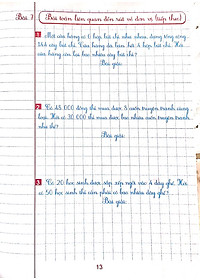 Bài 7 Bài toán liên quan đến rút về đơn vị (tiếp theo)
1 Một cửa hàng có 6 hộp bút chì như nhau đựng tổng cộng
144 cây bút chì. Cửa hàng đã bán hết 4 hộp bút chì. Hỏi
cửa hàng còn lại bao nhiêu cây bút chì?
Bài giải:
2 Có 45 000 đồng thì mua được 8 cuốn truyện tranh cùng
loại. Hỏi có 30 000 thì mua được bao nhiêu cuốn truyện tranh
như thế?
Bài giải:
3 Có 20 học sinh được sắp xếp ngồi vào 4 dãy ghế. Hỏi
có 50 học sinh thì cần phải có bao nhiêu dãy ghế?
Bài giải:
13